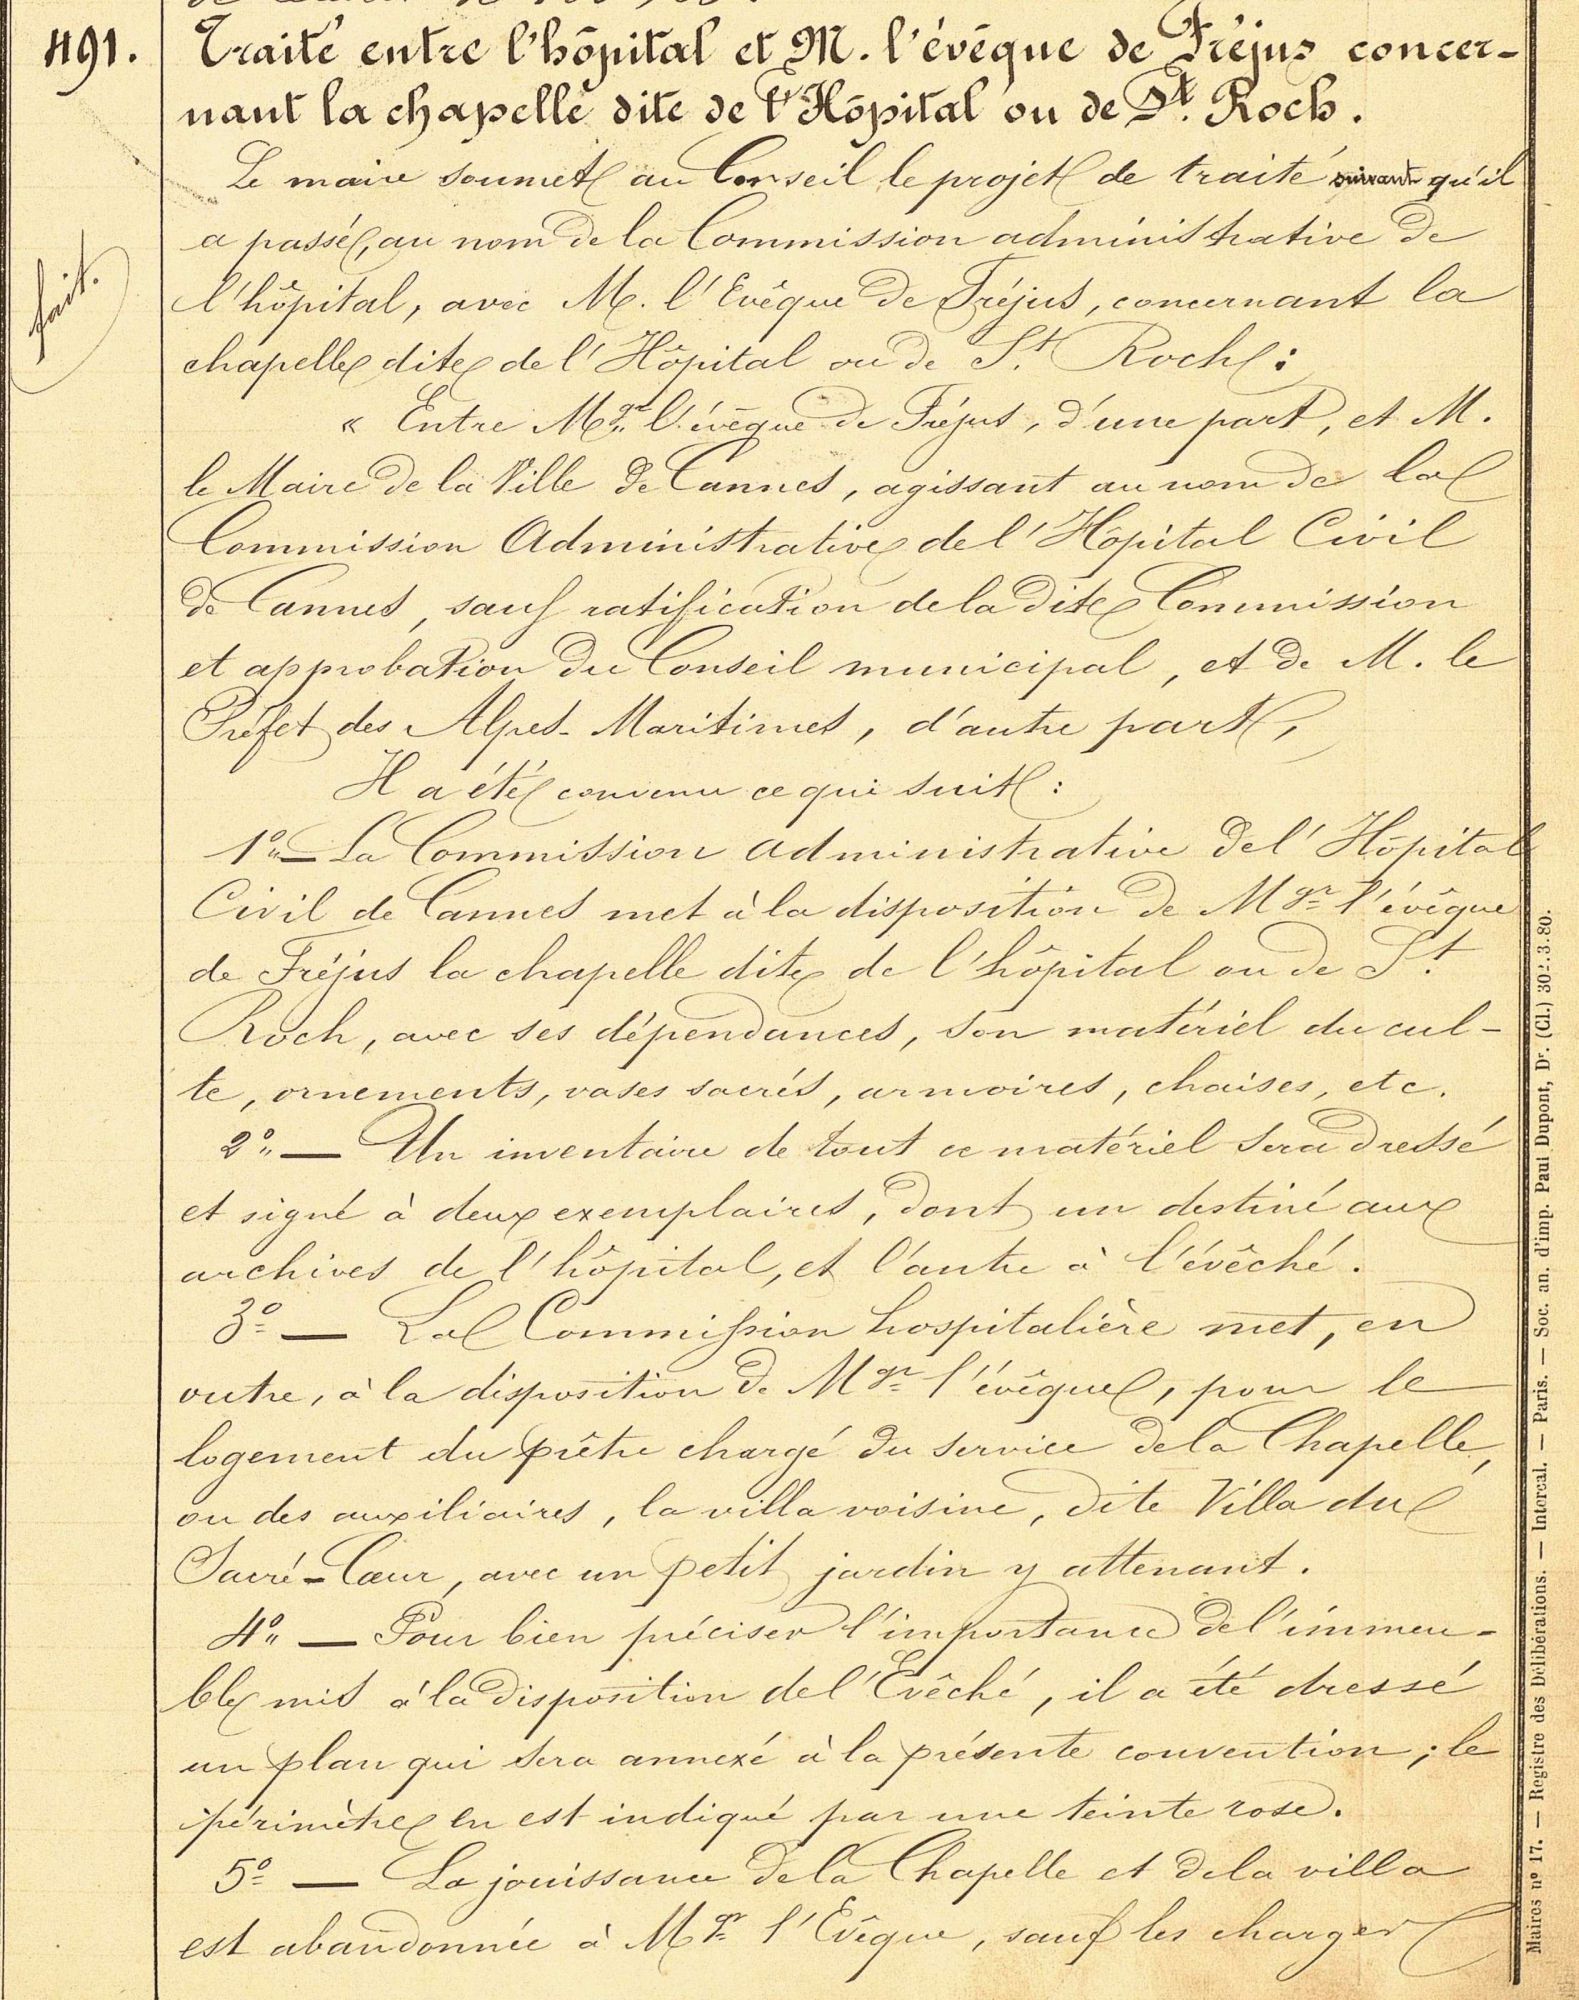 491.
Traité entre l'hôpital et M. l'évêque de Fréjus concer-
nant la chapelle dite de l'Hôpital ou de St. Roch.
Le maire soumet au Conseil le projet de traité suivant qu'il
a passé, au nom de la Commission administrative de
l'hôpital, avec M. l'Evêque de Fréjus, concernant la
chapelle dite de l'Hôpital ou de St. Roch :
fait.
« Entre Mgr. l'évêque de Fréjus, d'une part, et M.
le Maire de la Ville de Cannes, agissant au nom de la
Commission Administrative de l'Hôpital Civil
de Cannes, sauf ratification de la dite Commission
et approbation du Conseil municipal, et de M. le
Préfet des Alpes-Maritimes, d'autre part,
Il a été convenu ce qui suit :
1° — La Commission administrative de l'Hôpital
Civil de Cannes met à la disposition de Mgr l'évêque
de Fréjus la chapelle dite de l'hôpital ou de St.
Roch, avec ses dépendances, son matériel du cul-
te, ornements, vases sacrés, armoires, chaises, etc.
2° — Un inventaire de tout ce matériel sera dressé
et signé à deux exemplaires, dont un destiné aux
archives de l'hôpital, et l'autre à l'évêché.
3° — La Commission hospitalière met, en
outre, à la disposition de Mgr l'évêque, pour le
logement du prêtre chargé du service de la Chapelle,
ou des auxiliaires, la villa voisine, dite Villa du
Sacré-Cœur, avec un petit jardin y attenant.
4° — Pour bien préciser l'importance de l'immeu-
ble mis à la disposition de l'Evêché, il a été dressé
un plan qui sera annexé à la présente convention ; le
périmètre en est indiqué par une teinte rose.
5° — La jouissance de la Chapelle et de la villa
est abandonnée à Mgr l'Evêque, sauf les charges
Maires n° 17. — Registre des Délibérations. — Intercal. — Paris. — Soc. an. d'imp. Paul Dupont, Dr. (Cl.) 302.3.80.